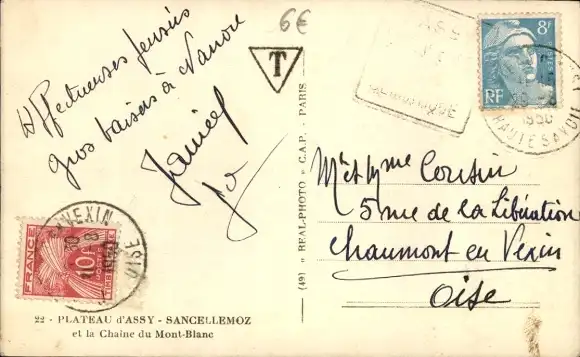 6€
Affectueuses pensées
gros baisers à Nanou
T
ASSY
8F
RF
POSTES
1950
HAUTE SAVOIE
Mr et Mme Cousin
5 rue de la Libération
Chaumont en Vexin
Oise
(49) " REAL-PHOTO " C.A.P. - PARIS
VEXIN
OISE
FRANCE
10F
TIMBRE TAXE
22 - PLATEAU d'ASSY - SANCELLEMOZ
et la Chaîne du Mont-Blanc